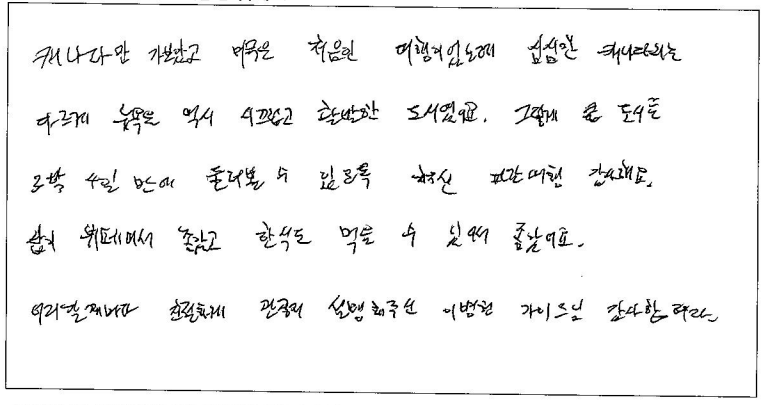 캐나다만 가보았고 미국은 처음인 여행이었는데 심심한 캐나다와는
다르게 뉴욕은 역시 시끄럽고 활발한 도시였어요. 그렇게 큰 도시를
3박 4일 만에 둘러볼 수 있도록 해주신 여행 감사해요.
뷔페에서 즐겁고 한식도 먹을 수 있어서 좋았어요.
친절하게 관광지 설명해주신 이범헌 가이드님 감사합니다.